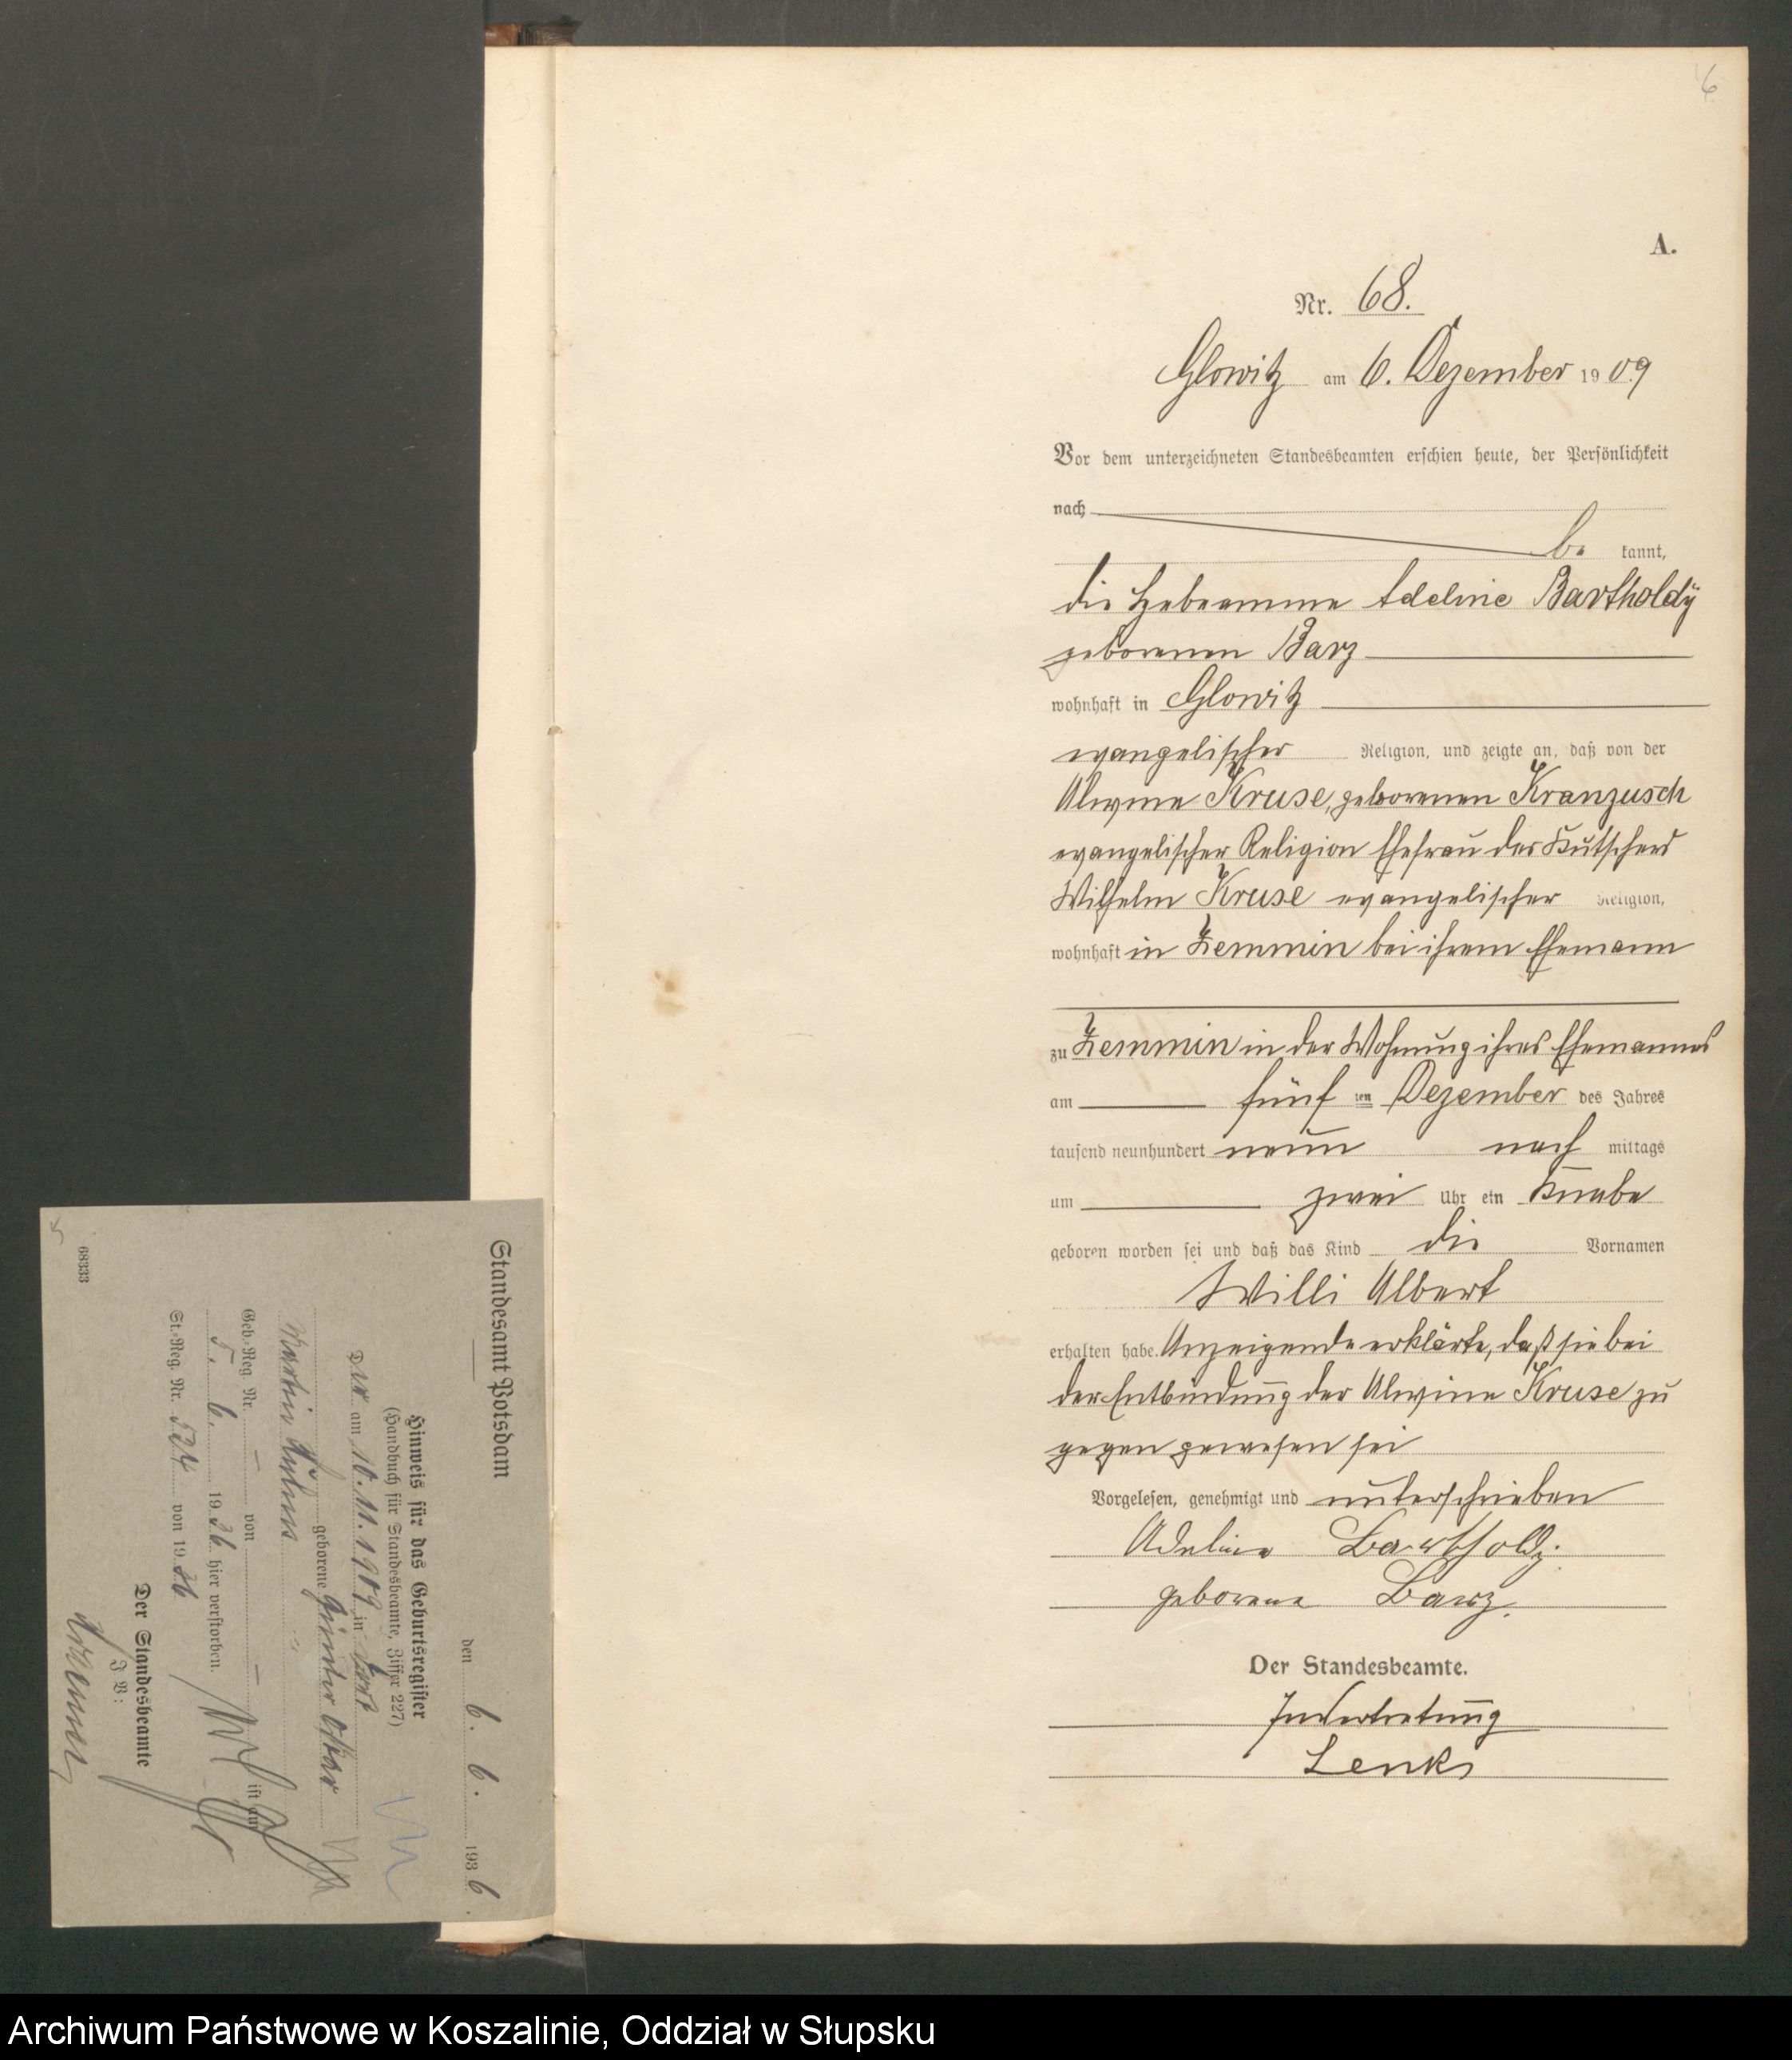 6
A.
Nr. 68.
Glowitz am 6. Dezember 1909
Vor dem unterzeichneten Standesbeamten erschien heute, der Persönlichkeit
nach
be kannt,
die Hebeamme Adeline Bartholdÿ
geborenen Barz
wohnhaft in Glowitz
evangelischer Religion, und zeigte an, daß von der
Alwine Kruse, geborenen Kranzusch
evangelischer Religion Ehefrau des Kutschers
Wilhelm Kruse evangelischer Religion,
wohnhaft in Zemmin bei ihrem Ehemann
zu Zemmin in der Wohnung ihres Ehemannes
am fünf ten Dezember des Jahres
tausend neunhundert neun nach mittags
um zwei Uhr ein Knabe
geboren worden sei und daß das Kind die Vornamen
Willi Albert
erhalten habe. Anzeigende erklärte, daß sie bei
der Entbindung der Alwine Kruse zu
gegen gewesen sei
Vorgelesen, genehmigt und unterschrieben
Adeline Bartholdy
geborene Barz.
Der Standesbeamte.
In Vertretung
Lenks
Standesamt Potsdam
den 6. 6. 1936.
Hinweis für das Geburtsregister
(Handbuch für Standesbeamte, Ziffer 227)
Der am 10.11.1909 in
geborene Günter Oskar
Martin
Geb.-Reg. Nr. — von — ist am
5. 6. 1936 hier verstorben.
St.-Reg. Nr. 524 von 1936
Der Standesbeamte
J V:
68333
Archiwum Państwowe w Koszalinie, Oddział w Słupsku